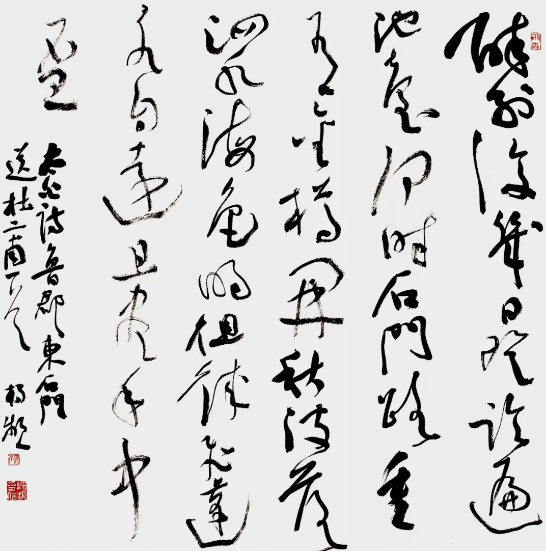 醉別復幾日登臨遍
池臺何時石門路重
有金樽開秋波落
泗水海色明徂徠飛蓬
各自遠且盡手中
盃
太白詩魯郡東石門
送杜二甫